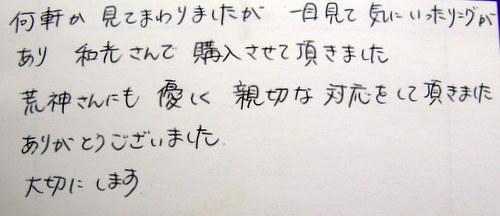 何軒か見てまわりましたが 一目見て気にいったリングが
あり 和光さんで購入させて頂きました
荒神さんにも 優しく 親切な対応をして頂きました
ありがとうございました.
大切にします.